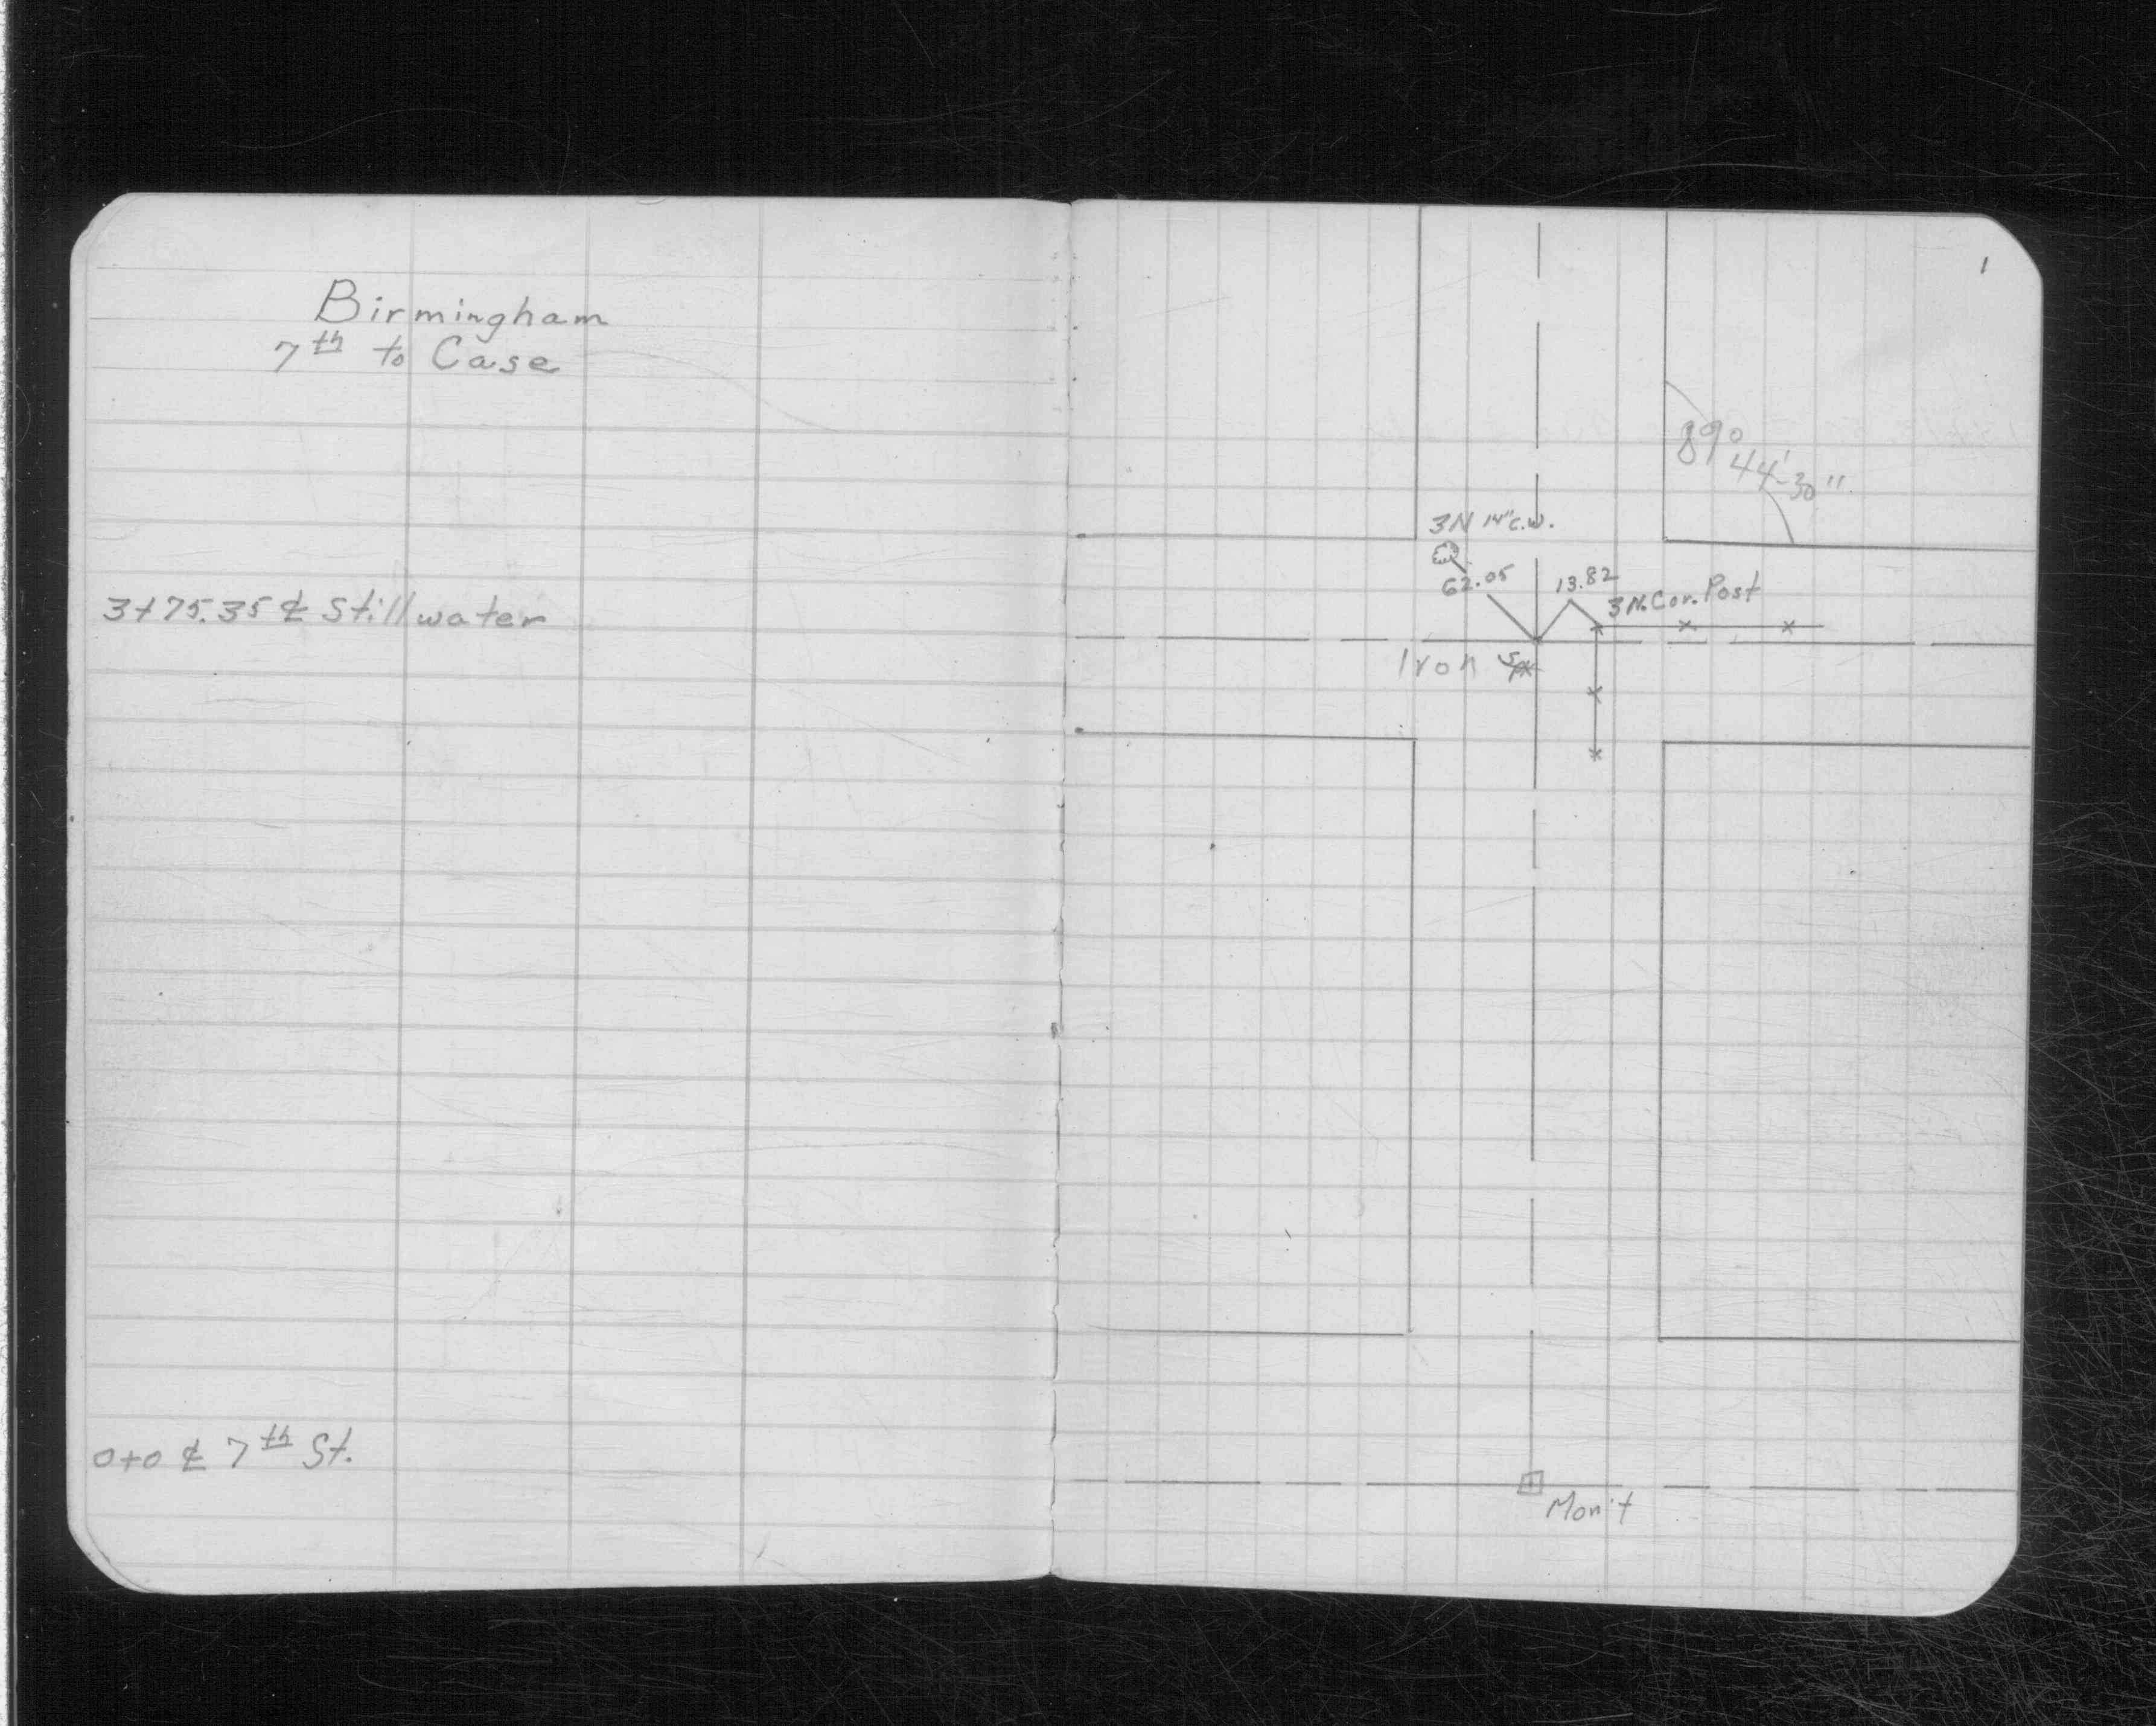 Birmingham
7th to Case
3+75.35 ℄ Stillwater
0+0 ℄ 7th St.
1
89° 44'-30"
3N 14" C.W.
62.05
13.82
3N. Cor. Post
Iron
Mon't